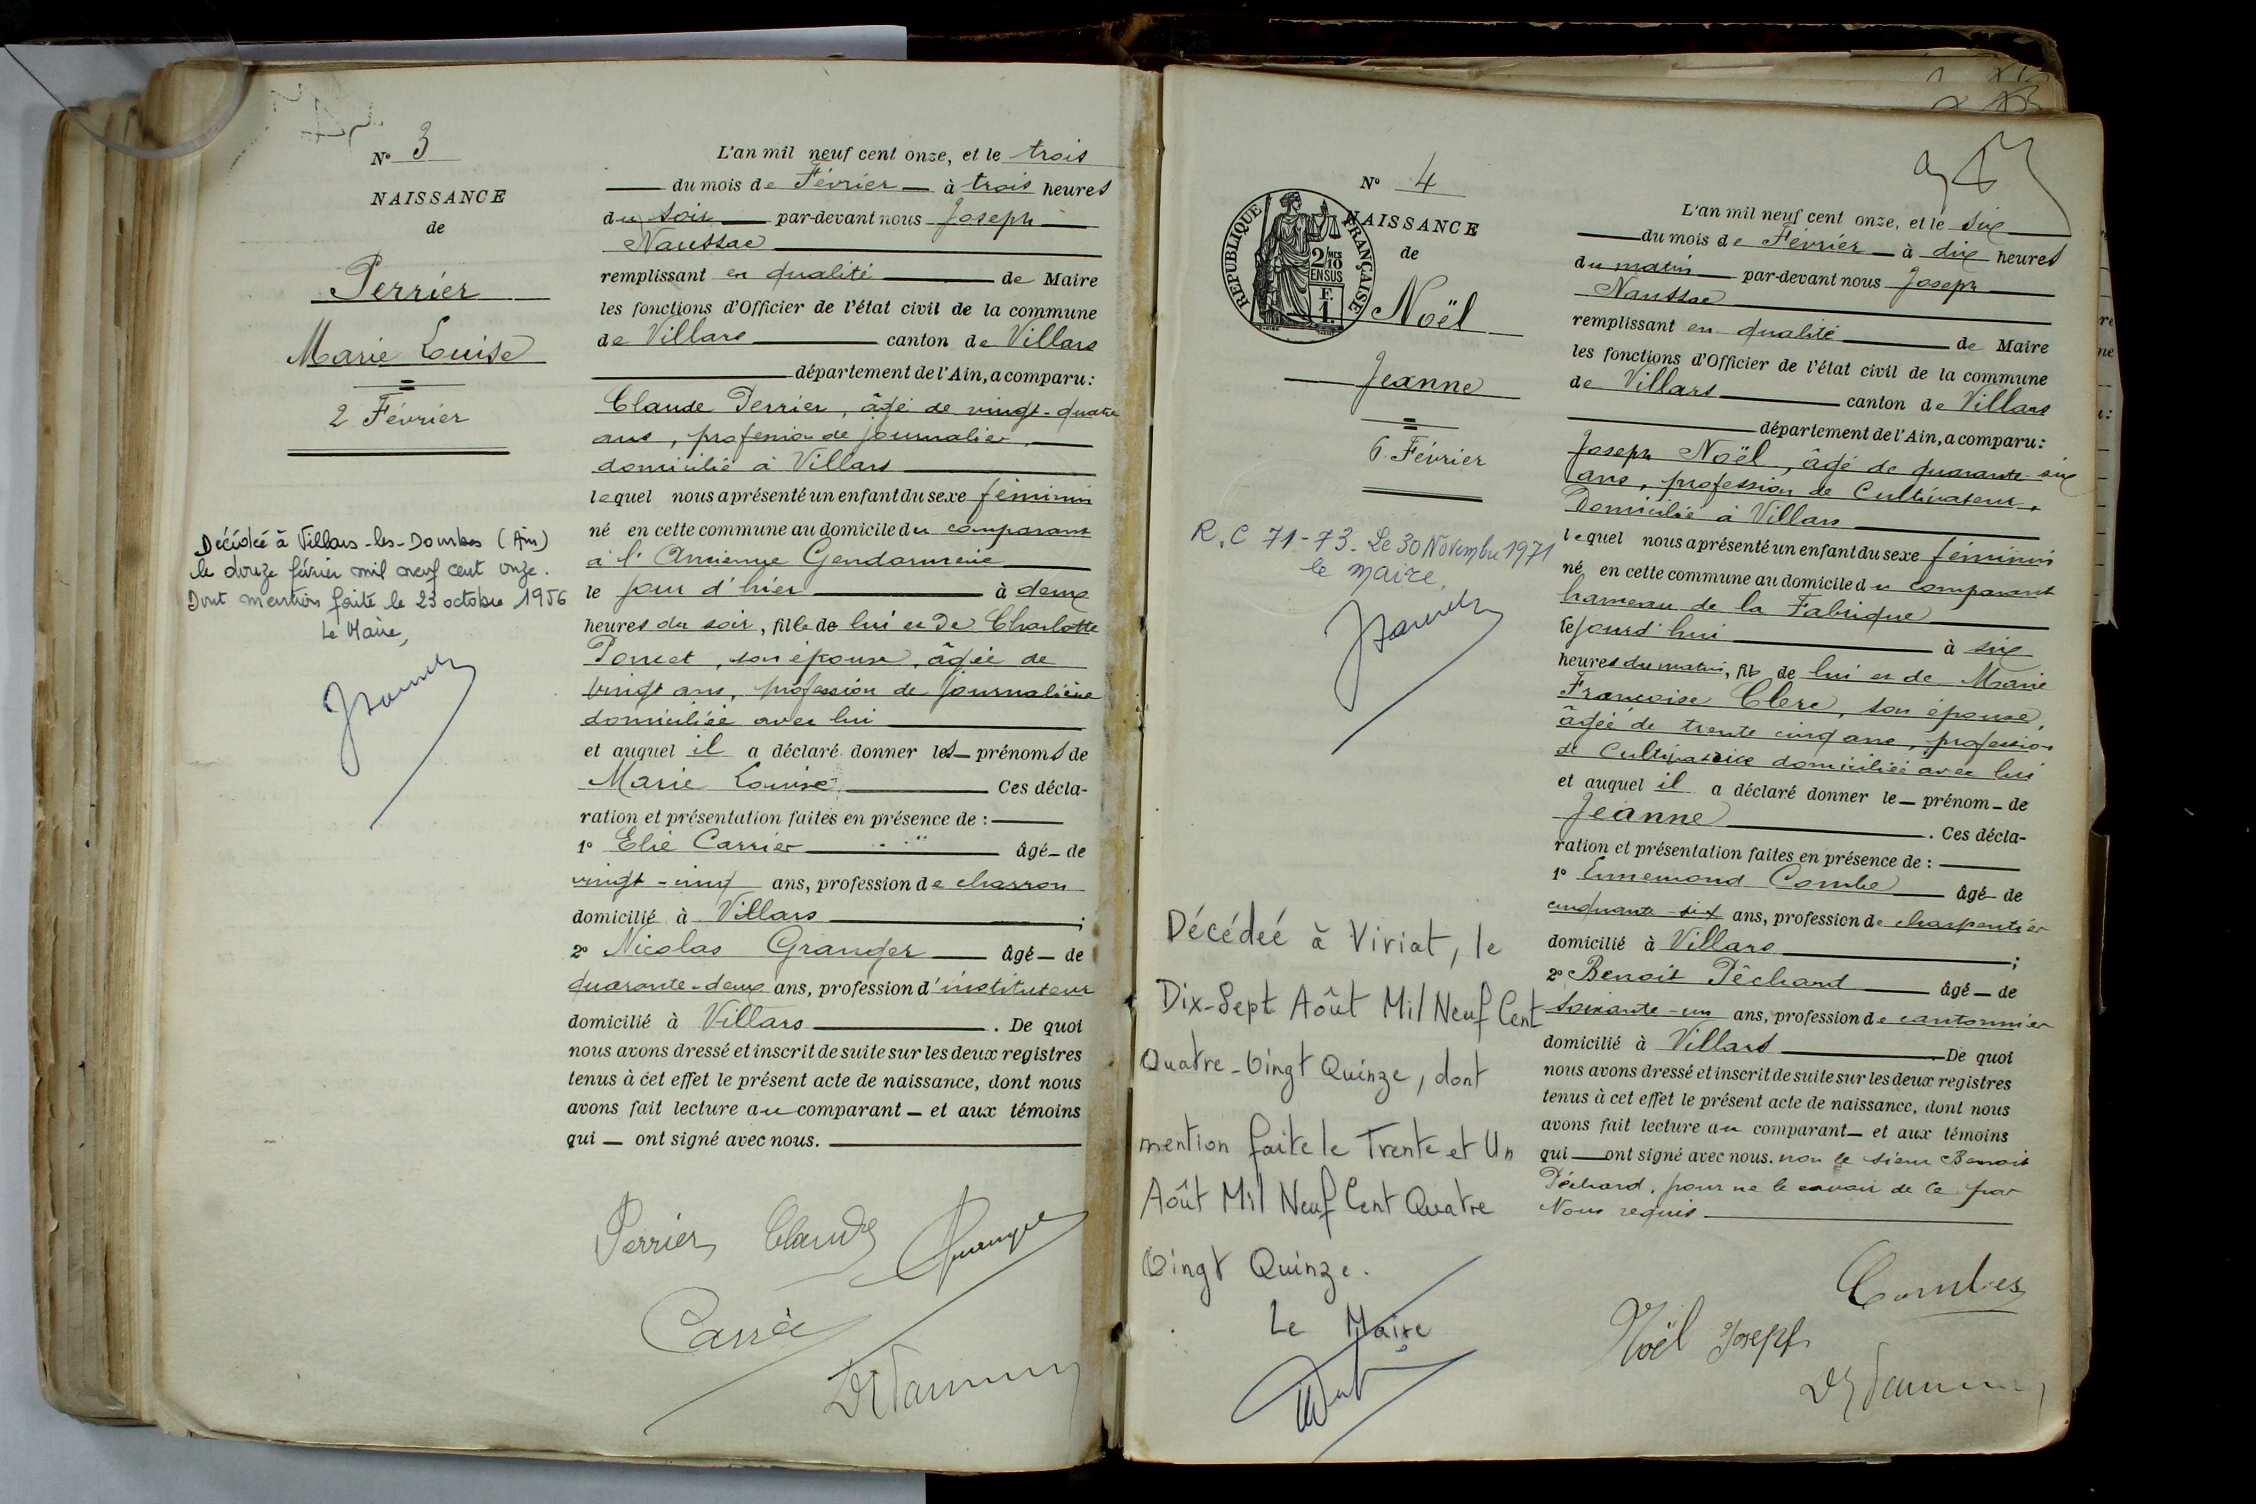 N° 3
NAISSANCE
de
Perrier
Marie Louise
2 Février
Décédée à Villars-les-Dombes (Ain)
le douze février mil neuf cent onze.
Dont mention faite le 23 octobre 1956
Le Maire,
L'an mil neuf cent onze, et le trois
du mois de Février à trois heures
du soir par-devant nous Joseph
Naussac
remplissant en qualité de Maire
les fonctions d'Officier de l'état civil de la commune
de Villars canton de Villars
département de l'Ain, a comparu :
Claude Perrier, âgé de vingt-quatre
ans, profession de journalier,
domicilié à Villars
lequel nous a présenté un enfant du sexe féminin
né en cette commune au domicile du comparant
à l'Ancienne Gendarmerie
le jour d'hier à deux
heures du soir, fille de lui et de Charlotte
Poncet, son épouse, âgée de
vingt ans, profession de journalière
domiciliée avec lui
et auquel il a déclaré donner les prénoms de
Marie Louise Ces décla-
ration et présentation faites en présence de :
1° Elie Carrier âgé de
vingt-cinq ans, profession de charron
domicilié à Villars ;
2° Nicolas Granger âgé de
quarante-deux ans, profession d'instituteur
domicilié à Villars . De quoi
nous avons dressé et inscrit de suite sur les deux registres
tenus à cet effet le présent acte de naissance, dont nous
avons fait lecture au comparant et aux témoins
qui ont signé avec nous.
Perrier Claude
N° 4
RÉPUBLIQUE FRANÇAISE
2/10 MES
EN SUS
F.
1.
NAISSANCE
de
Noël
Jeanne
6 Février
R.C 71-73. Le 30 Novembre 1971
le Maire,
Décédeé à Viriat, le
Dix-Sept Août Mil Neuf Cent
Quatre-Vingt Quinze, dont
mention faite le Trente et Un
Août Mil Neuf Cent Quatre
Vingt Quinze.
Le Maire
L'an mil neuf cent onze, et le six
du mois de Février à dix heures
du matin par-devant nous Joseph
Naussac
remplissant en qualité de Maire
les fonctions d'Officier de l'état civil de la commune
de Villars canton de Villars
département de l'Ain, a comparu :
Joseph Noël, âgé de quarante-six
ans, profession de Cultivateur,
Domicilié à Villars
lequel nous a présenté un enfant du sexe féminin
né en cette commune au domicile du comparant
hameau de la Fabrique
le jourd'hui à six
heures du matin, fils de lui et de Marie
Françoise Clerc, son épouse,
âgée de trente cinq ans, profession
de Cultivatrice domiciliée avec lui
et auquel il a déclaré donner le prénom de
Jeanne . Ces décla-
ration et présentation faites en présence de :
1° Ennemond Combe âgé de
cinquante-six ans, profession de charpentier
domicilié à Villars ;
2° Benoit Péchard âgé de
soixante-un ans, profession de cantonnier
domicilié à Villars De quoi
nous avons dressé et inscrit de suite sur les deux registres
tenus à cet effet le présent acte de naissance, dont nous
avons fait lecture au comparant et aux témoins
qui ont signé avec nous. non le sieur Benoit
Péchard, pour ne le savoir de ce par
Nous requis
Combes
Noël Joseph